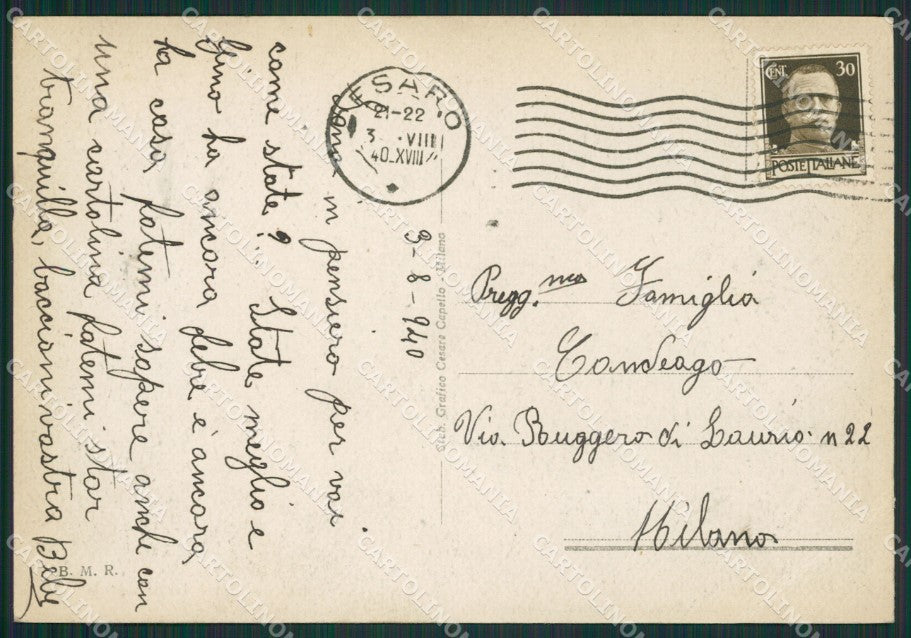 3-8-940
sono in pensiero per voi
come state? State meglio e
Gino ha ancora febre é ancora
ta casa, fatemi sapere anche con
una cartolina fatemi star
tranquilla, baccioni vostra Bebe
ESARO
21-22
3 VIII
40.XVIII
CENT. 30
POSTE ITALIANE
Pregg.ma Famiglia
Via Ruggero di Laurio n 22
Milano
Stab. Grafico Cesare Capello - Milano
B. M. R.
CARTOLINOMANIA